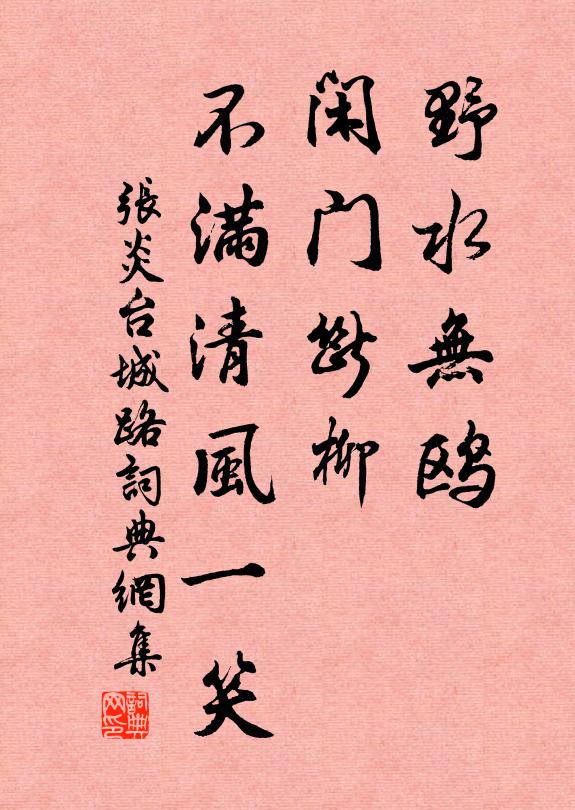 野水無鷗
闲门斷柳
不滿清風一笑
張炎台城路詞典網集
詞典网印